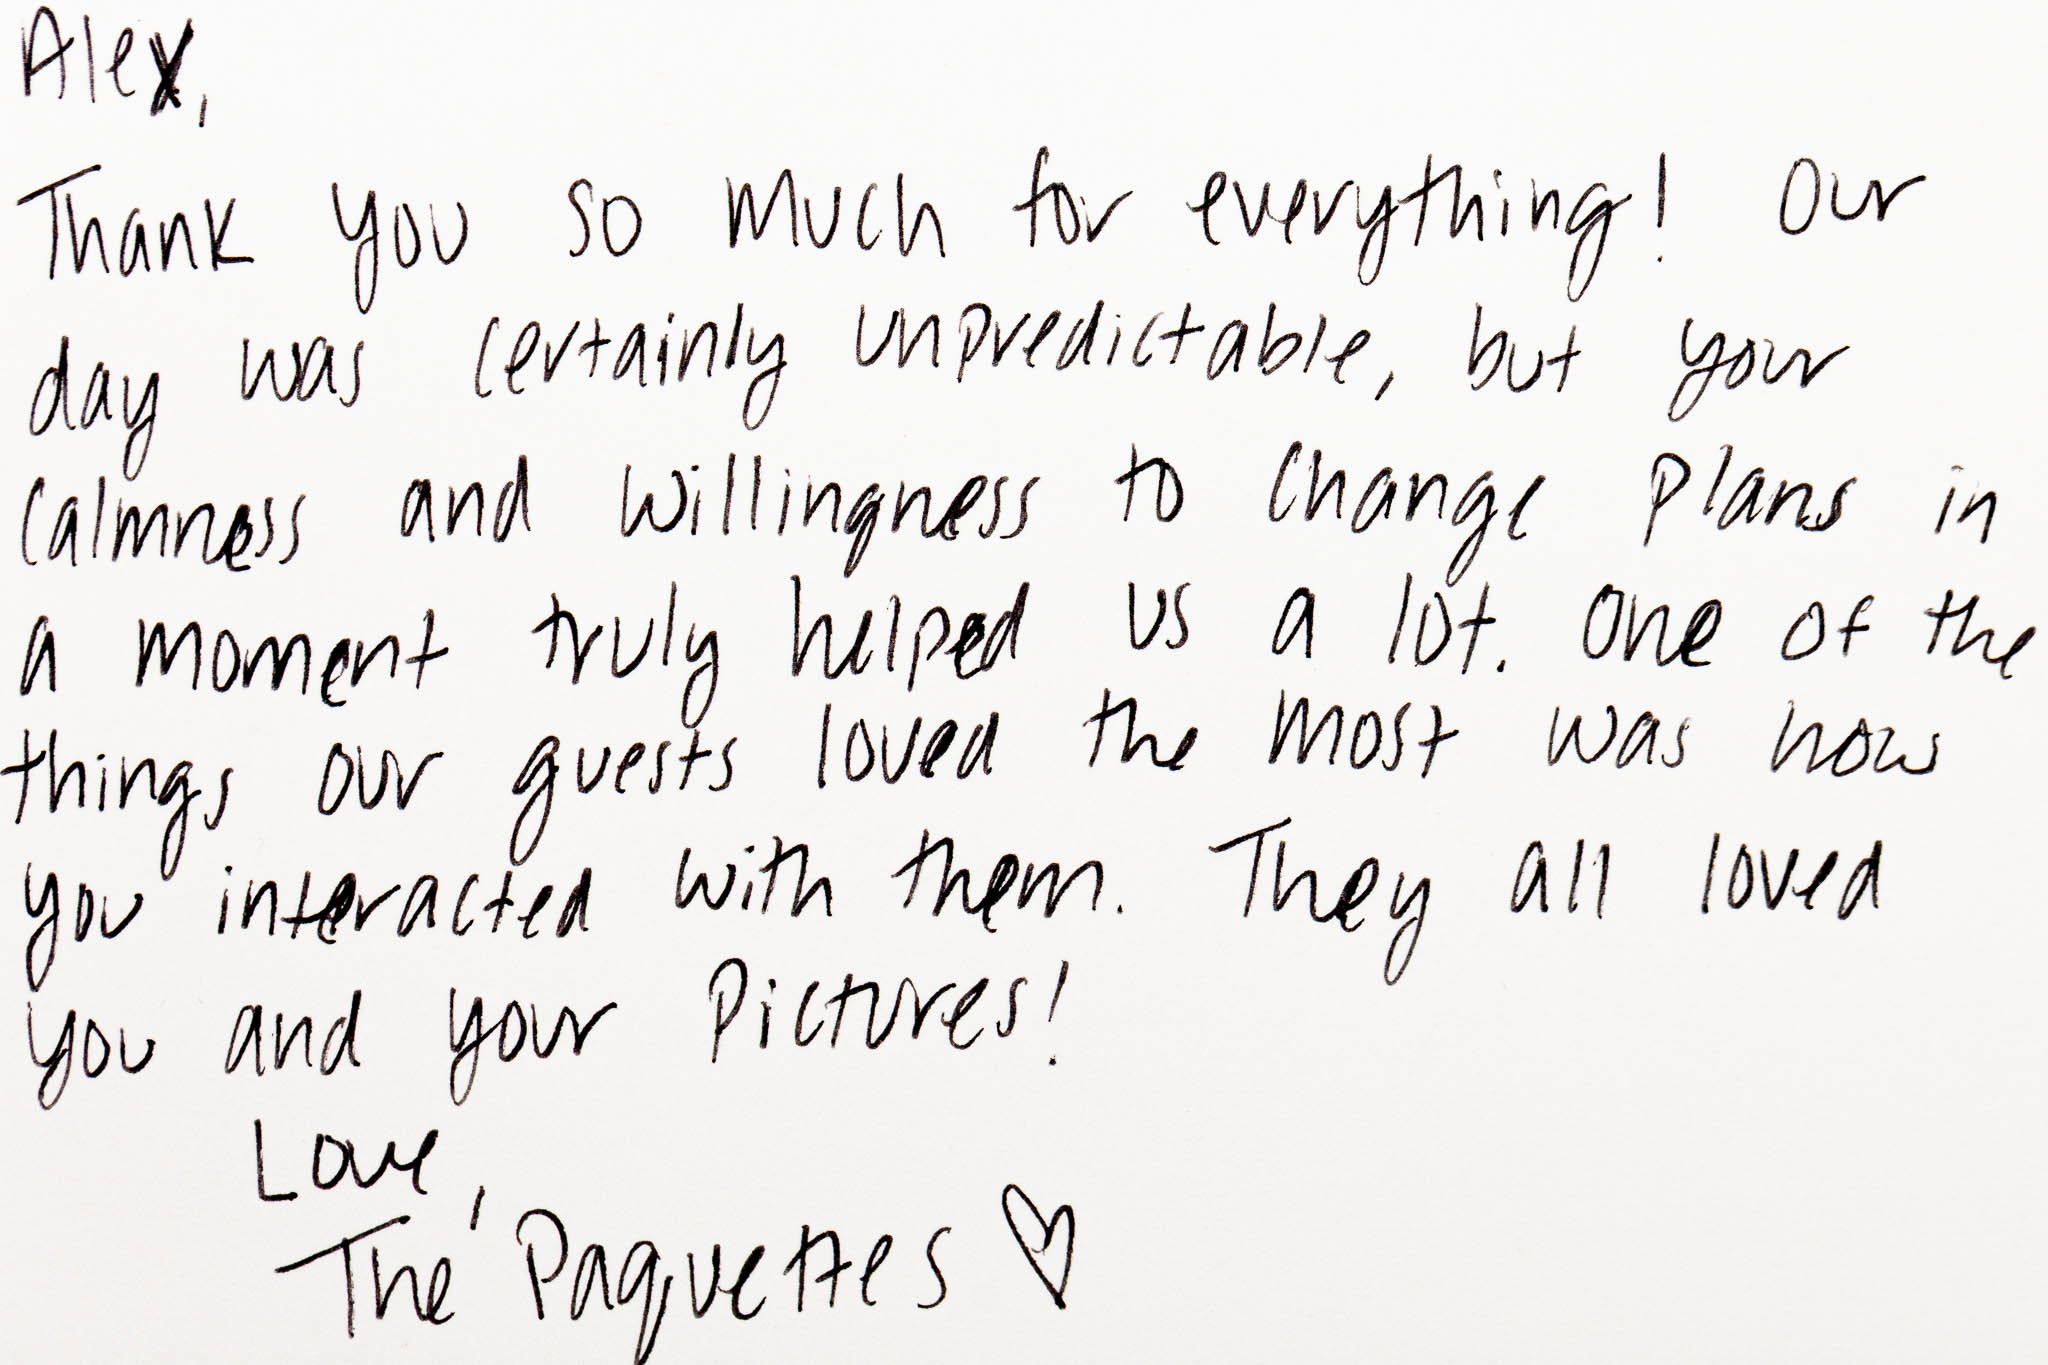 Alex,
Thank you so much for everything! Our
day was certainly unpredictable, but your
calmness and willingness to change plans in
a moment truly helped us a lot. One of the
things our guests loved the most was how
you interacted with them. They all loved
you and your pictures!
Love,
The Paquettes ♡